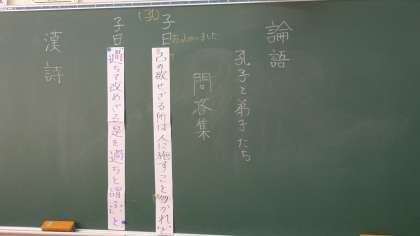 論語
孔子と弟子たち
問答集
子曰
己の欲せざる所は人に施すこと勿かれ
子曰
過ちて改めざる是を過ちと謂ふ
漢詩